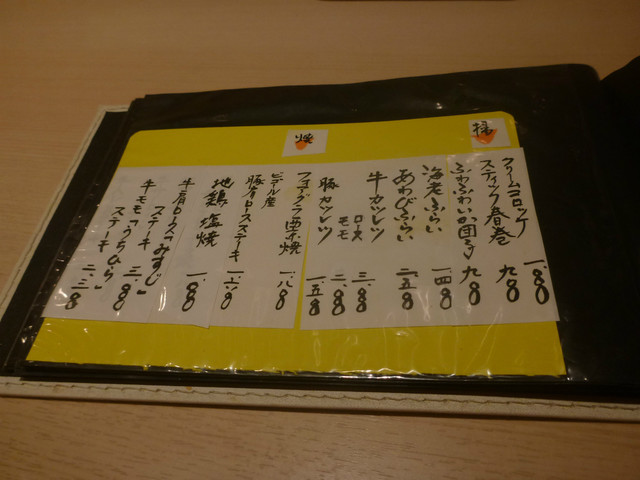 揚
クリームコロッケ 一、〇〇〇
スティック春巻 九〇〇
ふわふわいか団子 九〇〇
海老ふらい 一、四〇〇
あわびふらい 二、五〇〇
牛カツレツ
ロース 三、八〇〇
モモ 二、八〇〇
豚カツレツ 一、五〇〇
焼
フォアグラ栗焼 一、八〇〇
ビゴール産
豚肩ロースステーキ
地鶏塩焼 一、六〇〇
牛肩ロース「みすじ」
ステーキ 三、八〇〇
牛モモ「うちひら」
ステーキ 二、三〇〇